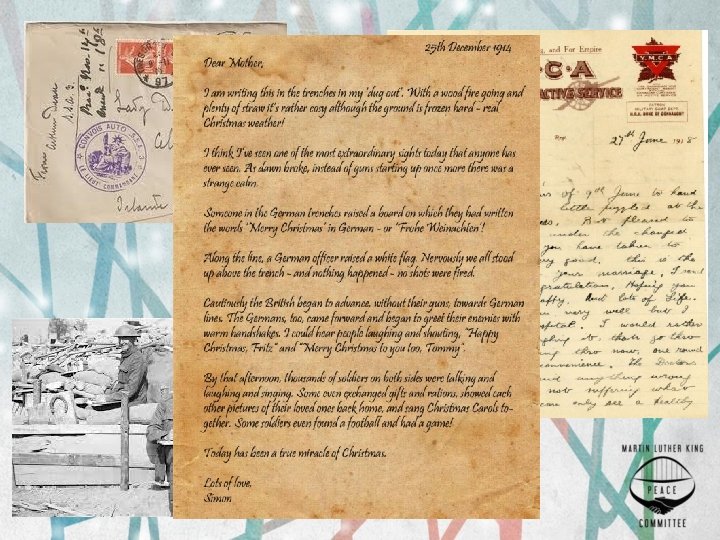 25th December 1914
Dear Mother,
I am writing this in the trenches in my 'dug out'. With a wood fire going and
plenty of straw it's rather cosy although the ground is frozen hard - real
Christmas weather!
I think I've seen one of the most extraordinary sights today that anyone has
ever seen. As dawn broke, instead of guns starting up once more there was a
strange calm.
Someone in the German trenches raised a board on which they had written
the words 'Merry Christmas' in German - or 'Frohe Weinachten'!
Along the line, a German officer raised a white flag. Nervously we all stood
up above the trench - and nothing happened - no shots were fired.
Cautiously the British began to advance, without their guns, towards German
lines. The Germans, too, came forward and began to greet their enemies with
warm handshakes. I could hear people laughing and shouting, "Happy
Christmas, Fritz" and "Merry Christmas to you too, Tommy".
By that afternoon, thousands of soldiers on both sides were talking and
laughing and singing. Some even exchanged gifts and rations, showed each
other pictures of their loved ones back home, and sang Christmas Carols to-
gether. Some soldiers even found a football and had a game!
Today has been a true miracle of Christmas.
Lots of love,
Simon
CONVOIS AUTO. S.S.A. 3
and For Empire
Y.M.C.A
C.A
ACTIVE SERVICE
27th June 1918
of 9th June to hand
little puzzled at the
But pleased to
under the changed
you have taken to
good, this is the
your marriage, I send
Hoping you
And lots of Life.
very well but I
I would rather
now, one round
The Doctors
not suffering what
only see a Healthy
MARTIN LUTHER KING
PEACE
COMMITTEE